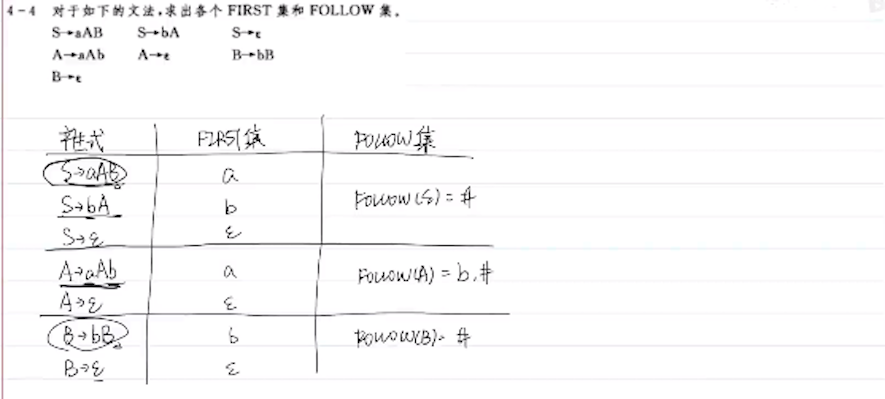 4-4 对于如下的文法,求出各个 FIRST 集和 FOLLOW 集。
S→aAB S→bA S→ε
A→aAb A→ε B→bB
B→ε
产生式 FIRST集 FOLLOW集
S→aAB a
S→bA b FOLLOW(S) = #
S→ε ε
A→aAb a FOLLOW(A) = b,#
A→ε ε
B→bB b FOLLOW(B)= #
B→ε ε